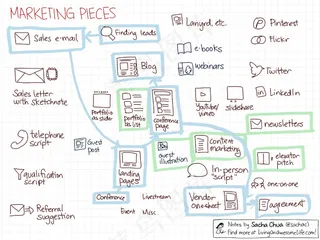 MARKETING PIECES
Sales e-mail
Finding leads
Lanyrd, etc.
Pinterest
Flickr
e-books
Blog
webinars
Twitter
Sales letter
with sketchnote
portfolio
as slider
portfolio
as list
conference
page
youtube/
vimeo
slideshare
LinkedIn
telephone
script
Guest
post
content
marketing
newsletters
guest
illustration
elevator
pitch
landing
pages
qualification
script
In-person
"script"
one-on-one
Conference
Livestream
Vendor
onesheet
agreement
Referral
suggestion
Event
Misc.
Notes by Sacha Chua (@sachac)
Find more at livinganawesomelife.com